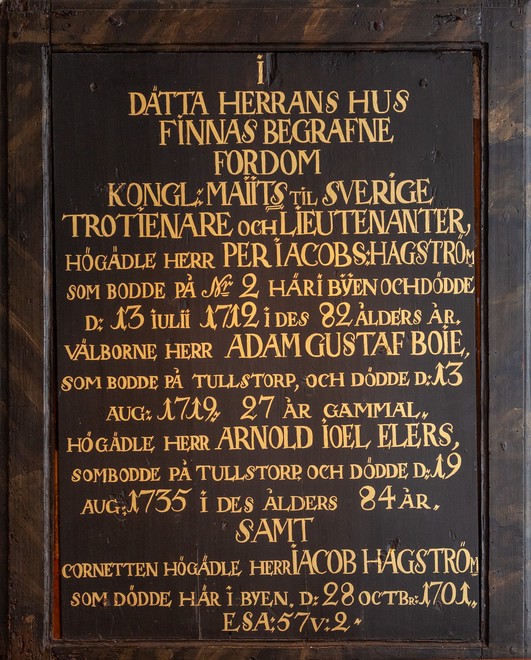 i
DÄTTA HERRANS HUS
FINNAS BEGRAFNE
FORDOM
KONGL: MAIJTS TIL SVERIGE
TROTIENARE OCH LIEUTENANTER,
HÖGÄDLE HERR PER IACOBS: HAGSTRÖM
SOM BODDE PÅ Nr 2 HÄR I BŸEN OCH DÖDDE
D: 13 IULII 1712 i DES 82 ÅLDERS ÅR.
VÄLBORNE HERR ADAM GUSTAF BOIE,
SOM BODDE PÅ TULLSTORP, OCH DÖDDE D: 13
AUG: 1719, 27 ÅR GAMMAL,
HÖGÄDLE HERR ARNOLD IOEL ELERS,
SOM BODDE PÅ TULLSTORP, OCH DÖDDE D: 19
AUG: 1735 i DES ÅLDERS 84 ÅR.
SAMT
CORNETTEN HÖGÄDLE HERR IACOB HAGSTRÖM
SOM DÖDDE HÄR I BYEN. D: 28 OCTBr: 1701.
ESA: 57 V: 2.